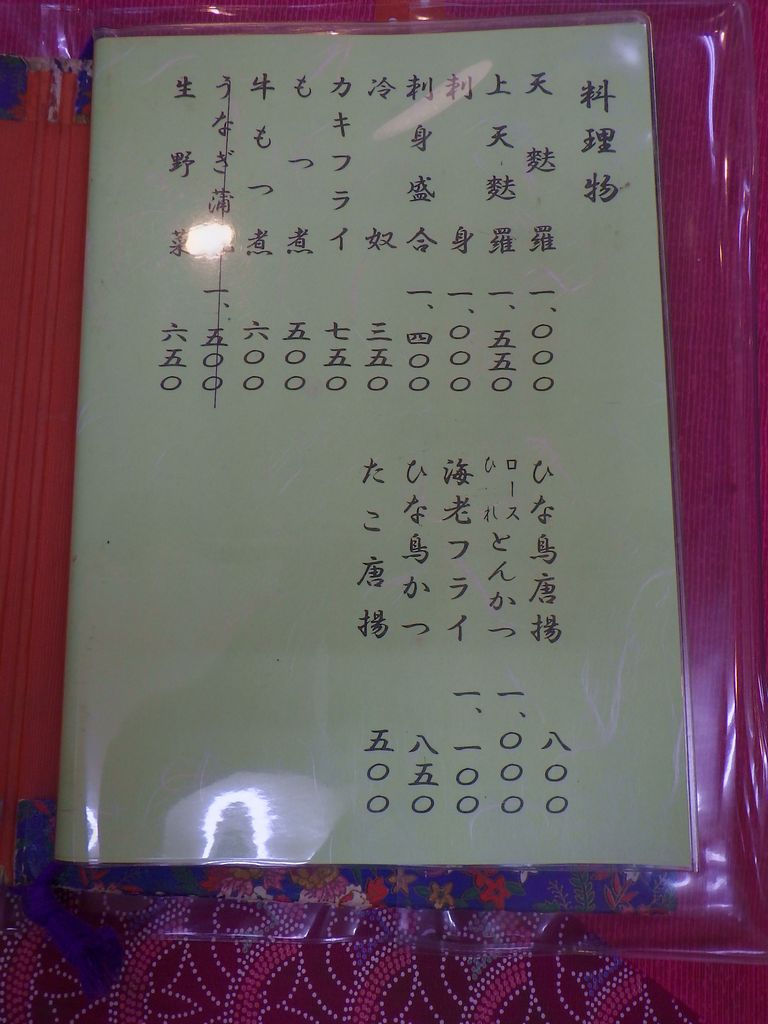 料理物
天麩羅 一、〇〇〇
上天麩羅 一、五五〇
刺身 一、〇〇〇
刺身盛合 一、四〇〇
冷奴 三五〇
カキフライ 七五〇
もつ煮 五〇〇
牛もつ煮 六〇〇
うなぎ蒲 一、五〇〇
生野菜 六五〇
ひな鳥唐揚 八〇〇
ロース ひれ とんかつ 一、〇〇〇
海老フライ 一、一〇〇
ひな鳥かつ 八五〇
たこ唐揚 五〇〇